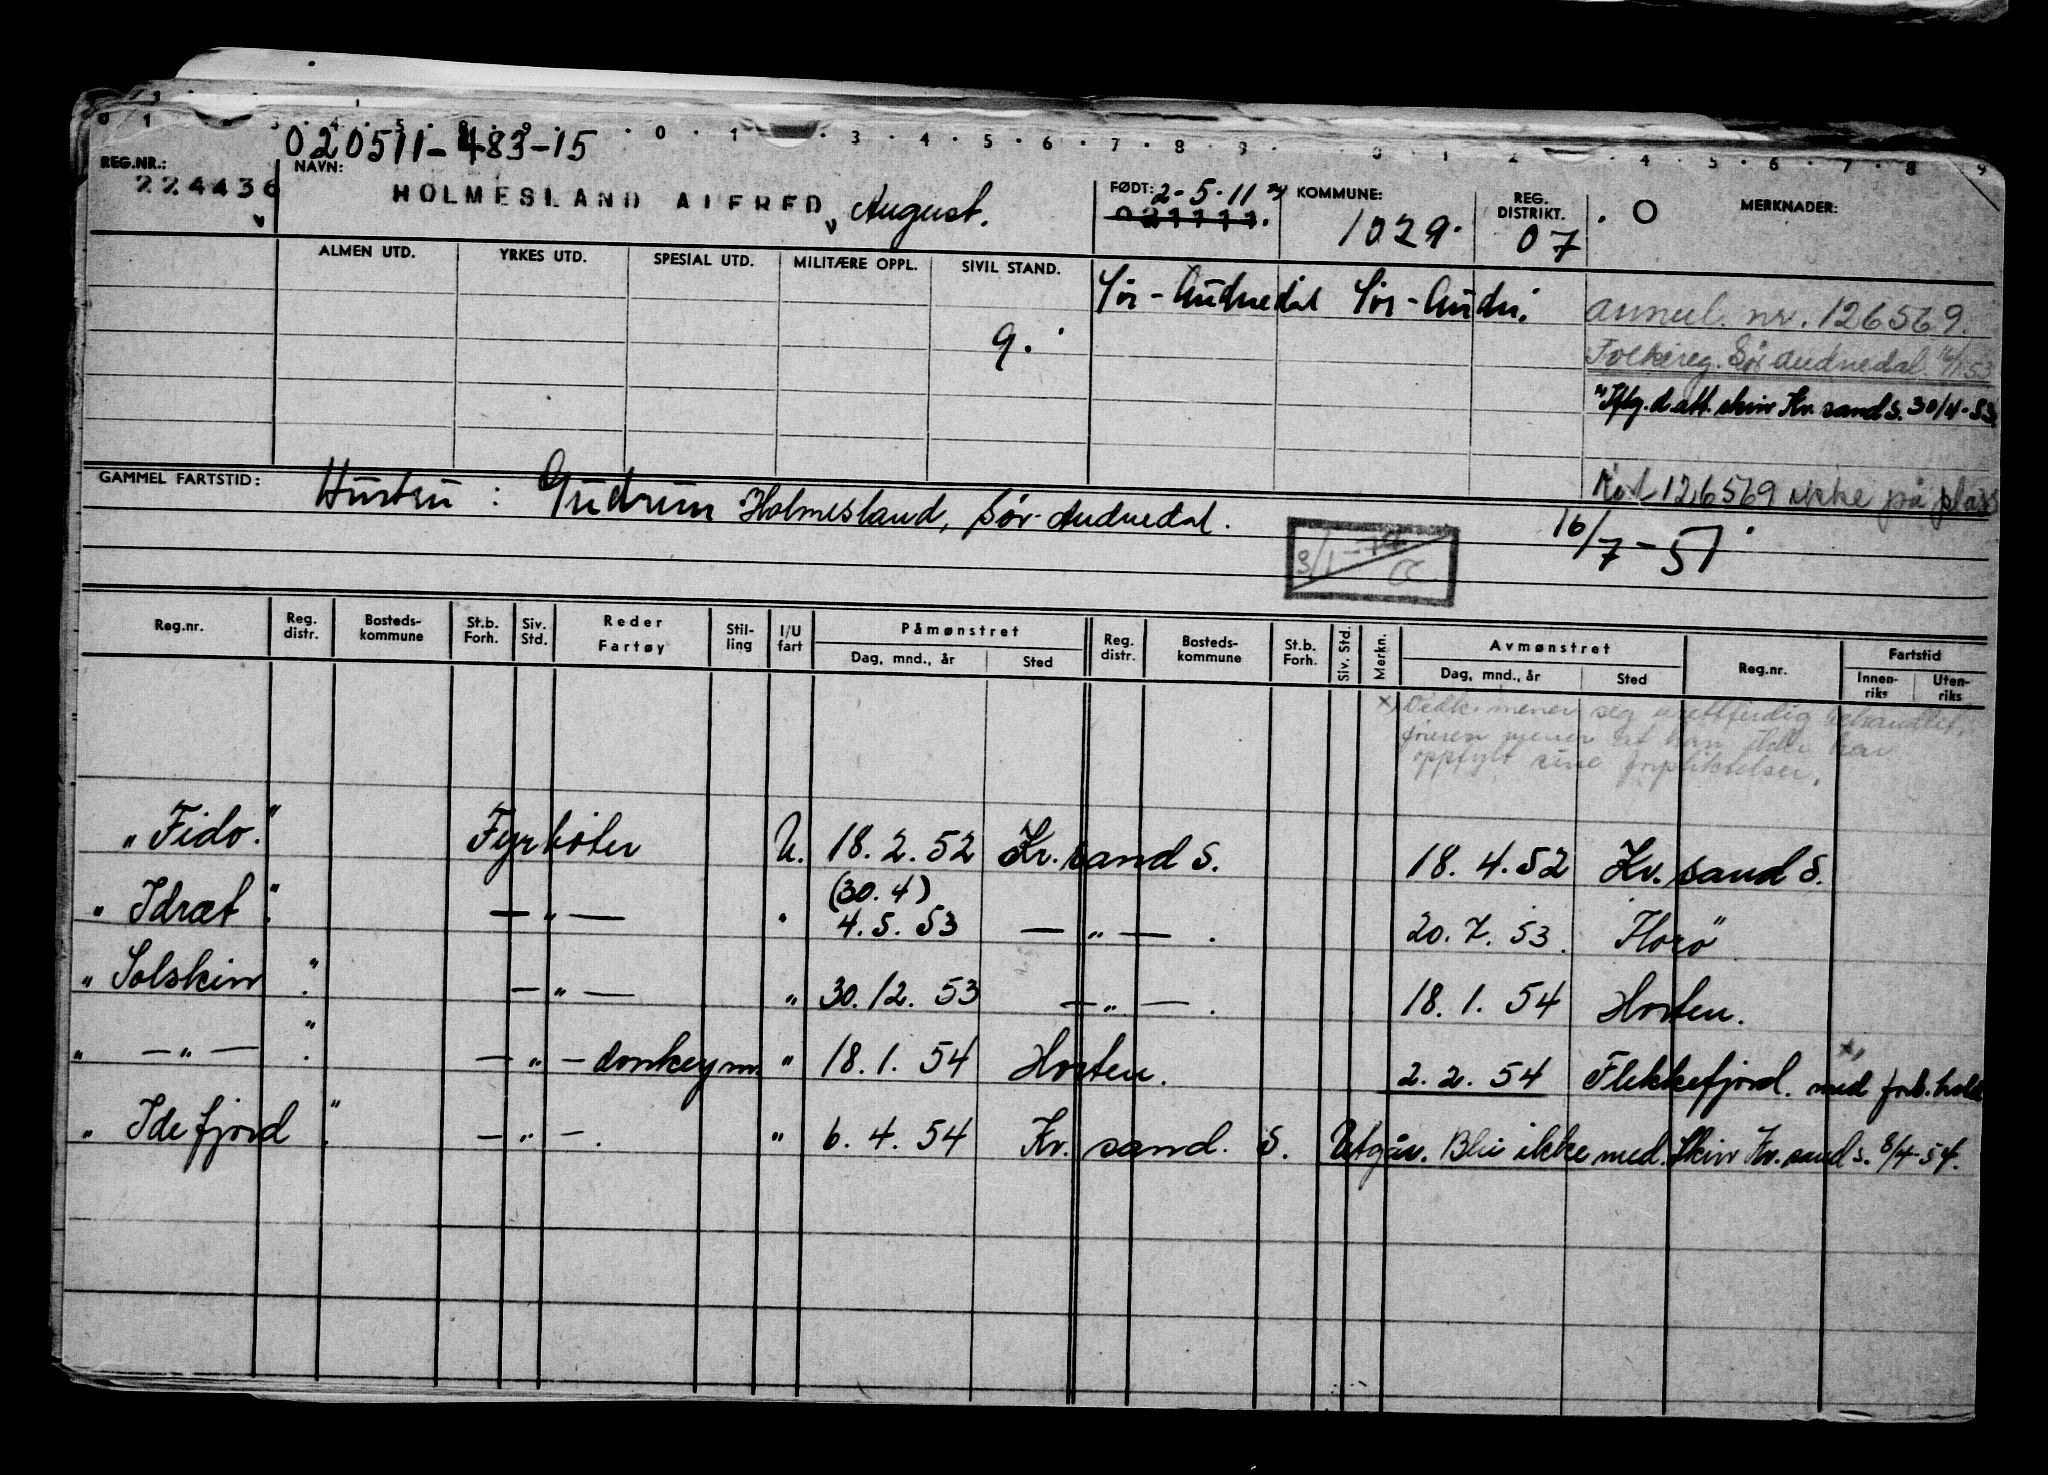 020511-483-15
REG.NR.: 224436
NAVN: HOLMESLAND ALFRED, August.
FØDT: 2-5-11
021111.
KOMMUNE: 1029.
REG. DISTRIKT. 07
. O MERKNADER:
ALMEN UTD. YRKES UTD. SPESIAL UTD. MILITÆRE OPPL. SIVIL STAND.
Sør-Audnedal Sør-Audn.
annul. nr. 126569.
g.
Folkereg. Sør Audnedal 16/1 53
Iflg. d. att. skiv Kr.sand S. 30/4-53
GAMMEL FARTSTID: Hustru: Gudrun Holmesland, Sør-Audnedal.
Kort 126569 ikke på plass
16/7-51.
3/1-74
Reg.nr. Reg. distr. Bosteds-kommune St.b. Forh. Siv. Std. Reder Fartøy Stil-ling I/U fart Påmønstret Dag, mnd., år Sted Reg. distr. Bosteds-kommune St.b. Forh. Siv. Std. Merkn. Avmønstret Dag, mnd., år Sted Reg.nr. Fartstid Innen-riks Uten-riks
x) Vedk. mener seg urettferdig behandlet,
føreren mener at han ikke har
oppfylt sine forpliktelser.
"Fido." Fyrbøter U. 18.2.52 Kr.sand S. 18.4.52 Kr.sand S.
(30.4)
"Idræt". — " — " 4.5.53 — " — . 20.7.53. Florø
"Solskin". — " — " 30.12.53 — " — . 18.1.54 Horten.
" — " — ". — " — donkeym. " 18.1.54 Horten. 2.2.54 Flekkefjord. x) med forb.hold
"Idefjord". — " — . " 6.4.54 Kr.sand. S. Utgår. Ble ikke med. Skiv Kr.sand S. 8/4-54.